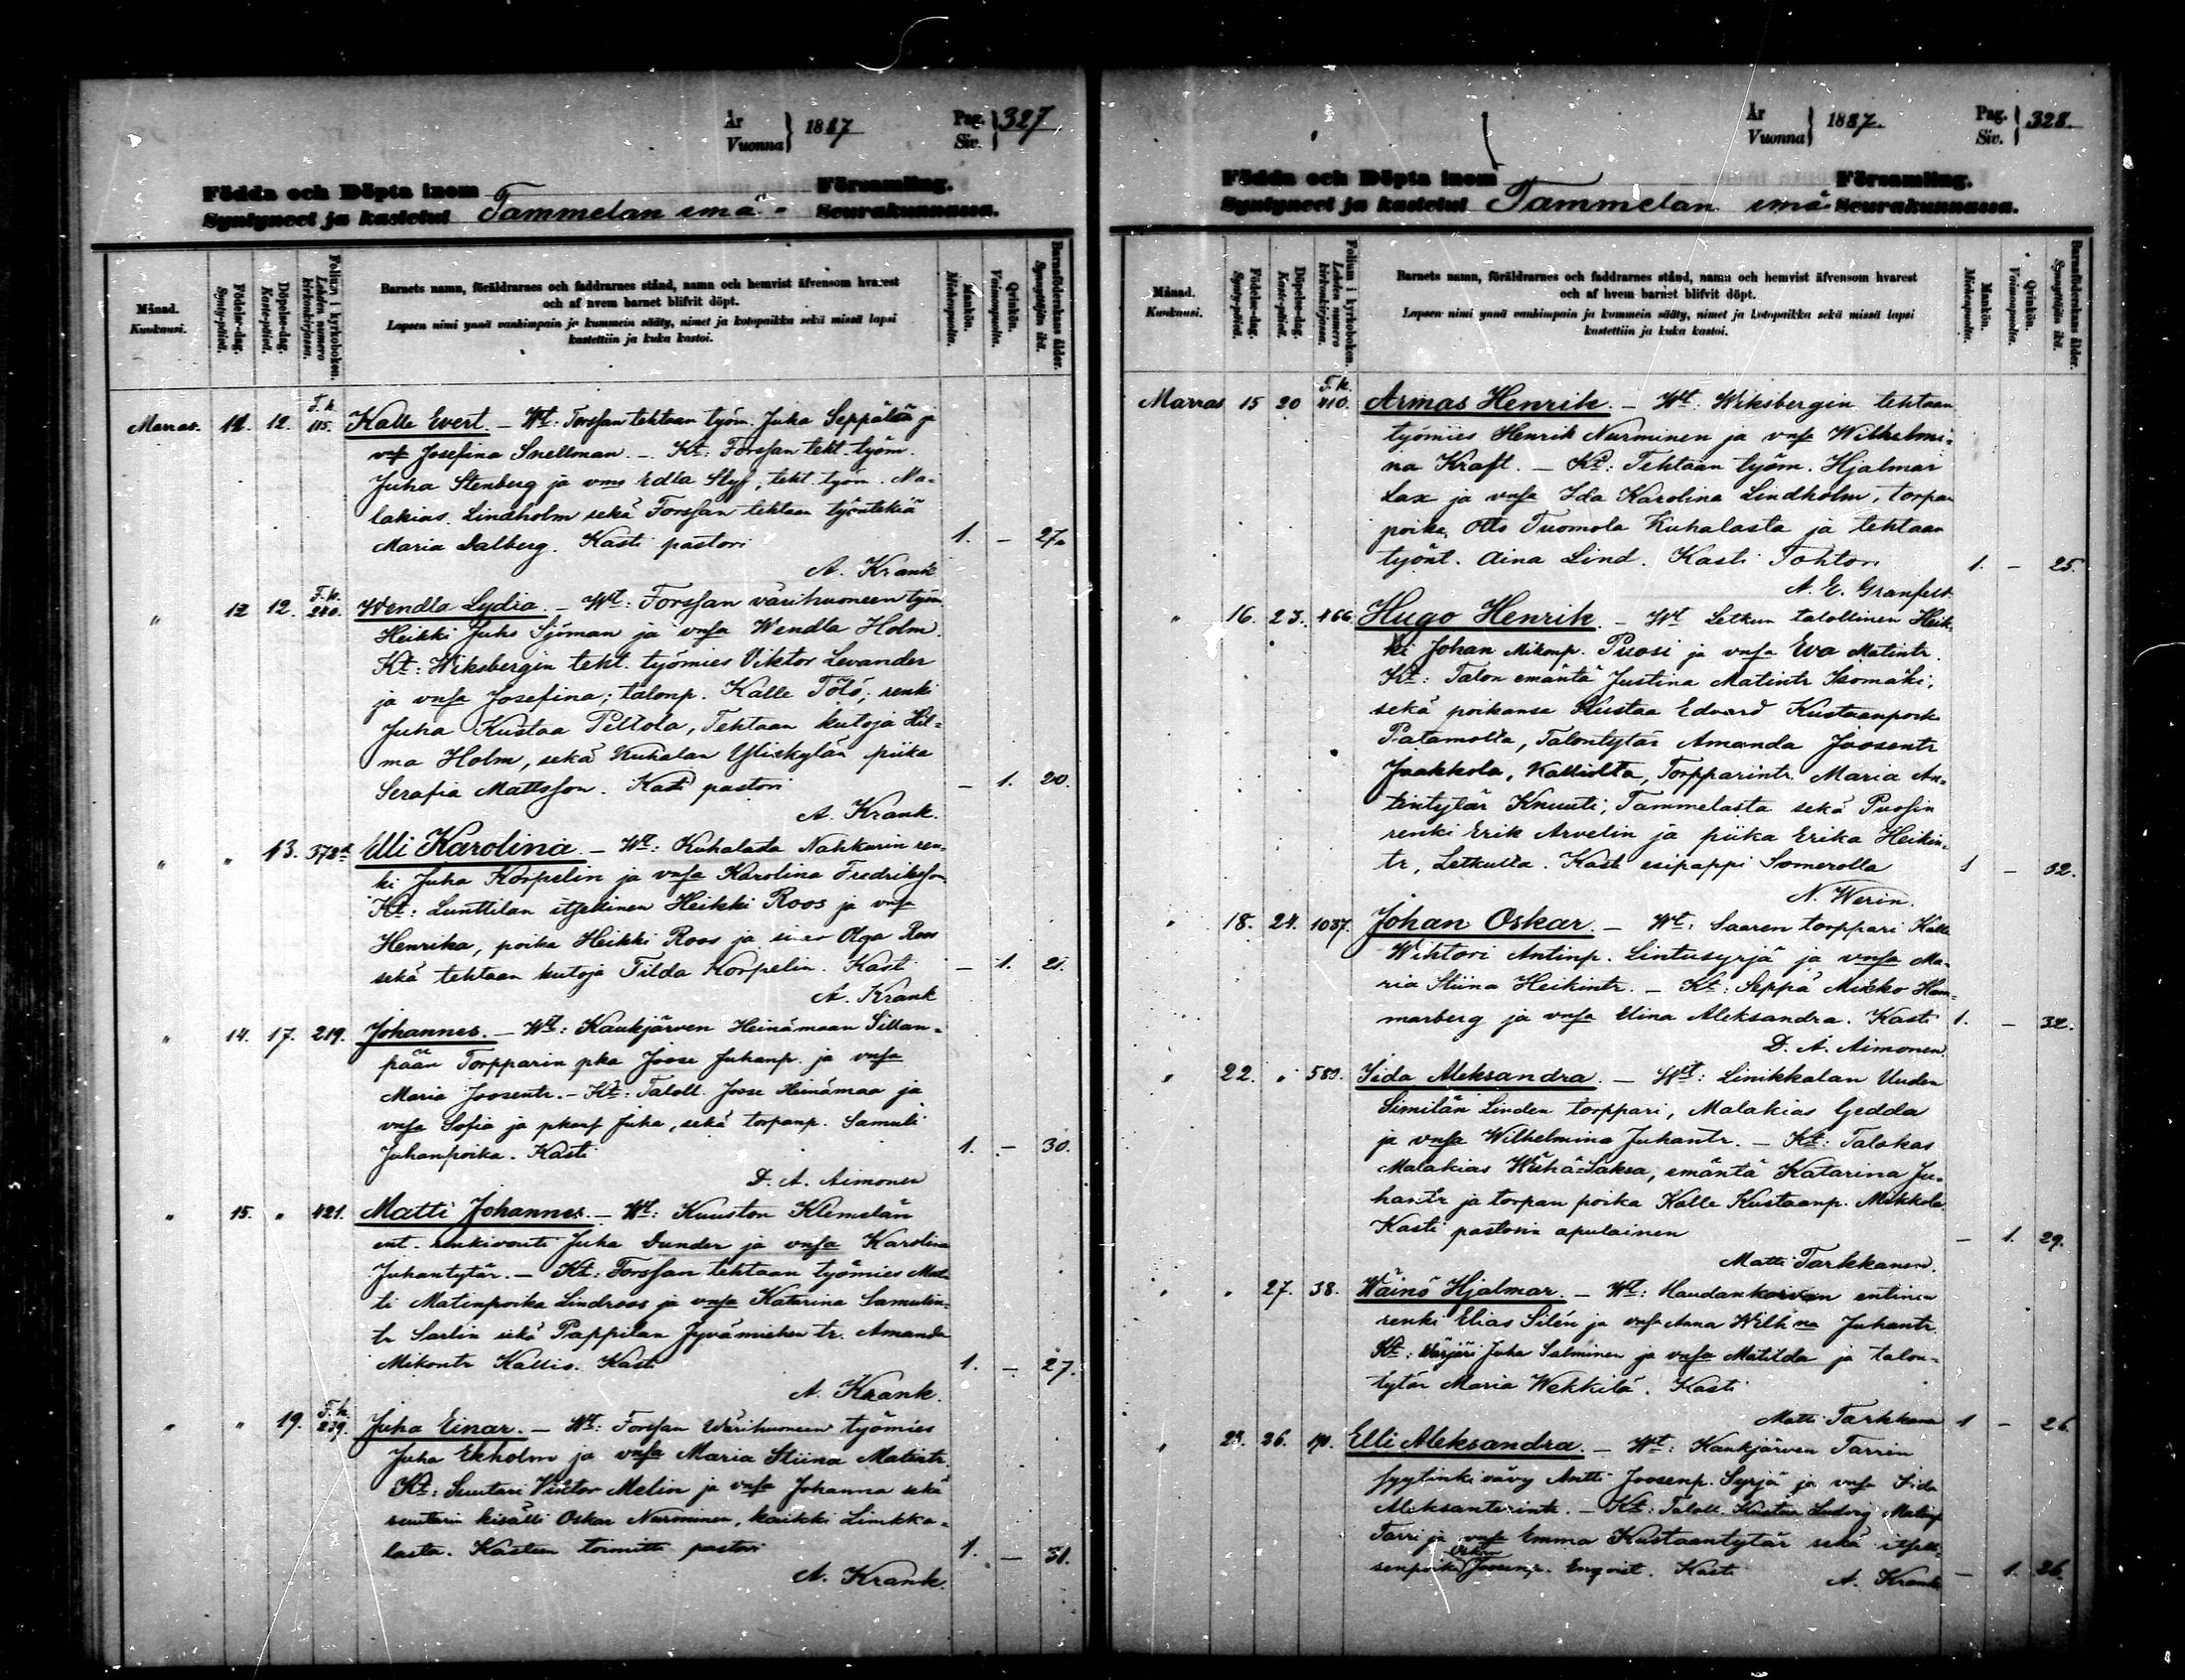 År
Vuonna } 1887
Pag.
Siv. } 327
Födda och Döpta inom
Syntyneet ja kastetut Tammelan emä- Församling.
Seurakunnassa.
Månad.
Kuukausi.
Födelse-dag.
Synty-päivä.
Döpelse-dag.
Kaste-päivä.
Folium i kyrkoboken.
Lehden numero kirkonkirjassa.
Barnets namn, föräldrarnes och faddrarnes stånd, namn och hemvist äfvensom hvarest
och af hvem barnet blifvit döpt.
Lapsen nimi ynnä vanhimpain ja kummein sääty, nimet ja kotopaikka sekä missä lapsi
kastettiin ja kuka kastoi.
Mankön.
Miehenpuolia.
Qvinkön.
Vaimonpuolia.
Barnaföderskans ålder.
Synnyttäjän ikä.
Marras. 11. 12. F.k. 115. Kalle Evert. — Wt: Forssan tehtaan työm. Juha Seppälä ja
vsa Josefina Snellman. — Kt: Forssan teht. työm.
Juha Stenberg ja vms Edla Styf, teht. työm. Ma-
lakias Lindholm sekä Forssan tehtaan työntekiä
Maria Dalberg. Kasti pastori 1. — 27.
A. Krank
" 12 12. F.k. 240. Wendla Lydia. — Wt: Forssan värihuoneen työm.
Heikki Juho Sjöman ja vnsa Wendla Holm.
Kt: Wiksbergin teht. työmies Viktor Levander
ja vnsa Josefina; talonp. Kalle Tölö; renki
Juha Kustaa Peltola, Tehtaan kutoja Hil-
ma Holm, sekä Kuhalan Yliskylän piika
Serafia Mattsson. Kasti pastori — 1. 20.
A. Krank.
" " 13. 372 Elli Karolina. — Wt: Kuhalada Nahkurin ren-
ki Juha Korpelin ja vnsa Karolina Fredriksson.
Kt: Lunttilan itsellinen Heikki Roos ja vnsa
Henrika, poika Heikki Roos ja sisar Olga Roos
sekä tehtaan kutoja Tilda Korpelin. Kasti — 1. 21.
A. Krank
" 14. 17. 219. Johannes. — Wt: Kaukjärven Heinämaan Sillan-
pään Torpparin pka Joose Juhanp. ja vnsa
Maria Joosentr. — Kt: Taloll. Joose Heinämaa ja
vnsa Sofia ja pkans Juha, sekä torpanp. Samuli
Juhanpoika. Kasti 1. — 30.
D. A. Aimonen
" 15. " 421. Matti Johannes. — Wt: Kuuston Klemelän
ent. renkivouti Juha Dunder ja vnsa Karolina
Juhantytär. — Kt: Forssan tehtaan työmies Mat-
ti Matinpoika Lindroos ja vnsa Katarina Samulin-
tr Sarlin sekä Pappilan Jyvämiehen tr. Amanda
Mikontr Kallio. Kasti 1. — 27.
A. Krank.
" " 19. F.k. 239. Juha Einar. — Wt: Forssan Värihuoneen työmies
Juha Ekholm ja vnsa Maria Stiina Matintr.
Kt: Suutari Viktor Melin ja vnsa Johanna sekä
suutarin kisälli Oskar Nurminen, kaikki Linikka-
lasta. Kasteen toimitti pastori 1. — 31.
A. Krank.
År
Vuonna } 1887.
Pag.
Siv. } 328.
Födda och Döpta inom
Syntyneet ja kastetut Tammelan emä Församling.
Seurakunnassa.
Månad.
Kuukausi.
Födelse-dag.
Synty-päivä.
Döpelse-dag.
Kaste-päivä.
Folium i kyrkoboken.
Lehden numero kirkonkirjassa.
Barnets namn, föräldrarnes och faddrarnes stånd, namn och hemvist äfvensom hvarest
och af hvem barnet blifvit döpt.
Lapsen nimi ynnä vanhimpain ja kummein sääty, nimet ja kotopaikka sekä missä lapsi
kastettiin ja kuka kastoi.
Mankön.
Miehenpuolia.
Qvinkön.
Vaimonpuolia.
Barnaföderskans ålder.
Synnyttäjän ikä.
Marras 15 20 F.k. 410. Armas Henrik. — Wt: Wiksbergin tehtaan
työmies Henrik Nurminen ja vnsa Wilhelmi-
na Kraft. — Kt: Tehtaan työm. Hjalmar
Lax ja vnsa Ida Karolina Lindholm, torpan
poika Otto Tuomola Kuhalasta ja tehtaan
työnt. Aina Lind. Kasti Tohtori 1. — 25.
A. E. Granfelt.
" 16. 23. 466 Hugo Henrik. — Wt Letkun talollinen Heik-
ki Johan Mikonp. Puosi ja vnsa Eva Matintr.
Kt: Talon emäntä Justina Matintr Isomäki,
sekä poikansa Kustaa Edvard Kustaanpoik.
Patamolta, Talontytär Amanda Joosentr
Jaakkola, Kalliolta, Torpparintr. Maria An-
tintytär Knuuti, Tammelasta sekä Puosin
renki Erik Arvelin ja piika Erika Heikin-
tr, Letkulta. Kasti esipappi Somerolla 1 — 32.
N. Werin.
" 18. 24. 1037. Johan Oskar. — Wt: Saaren torppari Kalle
Wihtori Antinp. Lintusyrjä ja vnsa Ma-
ria Stiina Heikintr. — Kt: Seppä Mikko Ham-
marberg ja vnsa Elina Aleksandra. Kasti 1. — 32.
D. A. Aimonen.
" 22. " 589. Iida Aleksandra. — Wt: Linikkalan Uuden
Similän Linden torppari, Malakias Gedda
ja vnsa Wilhelmina Juhantr. — Kt: Talokas
Malakias Wähä-Saksa, emäntä Katarina Ju-
hantr ja torpan poika Kalle Kustaanp. Mikkola.
Kasti pastorin apulainen — 1. 29.
Matti Tarkkanen.
" " 27. 38. Wäinö Hjalmar. — Wt: Haudankorvan entinen
renki Elias Silén ja vnsa Anna Wilh:na Juhantr.
Kt: Värjäri Juha Salminen ja vnsa Matilda ja talon-
tytär Maria Wekkilä. Kasti
Matti Tarkkanen 1 — 26.
" 23. 26. 190. Elli Aleksandra. — Wt: Kaukjärven Tarrin
syytinki vävy Antti Joosenp. Syrjä ja vnsa Iida
Aleksanterintr. — Kt: Taloll. Kustaa Ludvig Matinp.
Tarri ja vnsa Emma Kustaantytär sekä itsell-
senpoika Oskar Joosenp. Enqvist. Kasti — 1. 26.
A. Krank